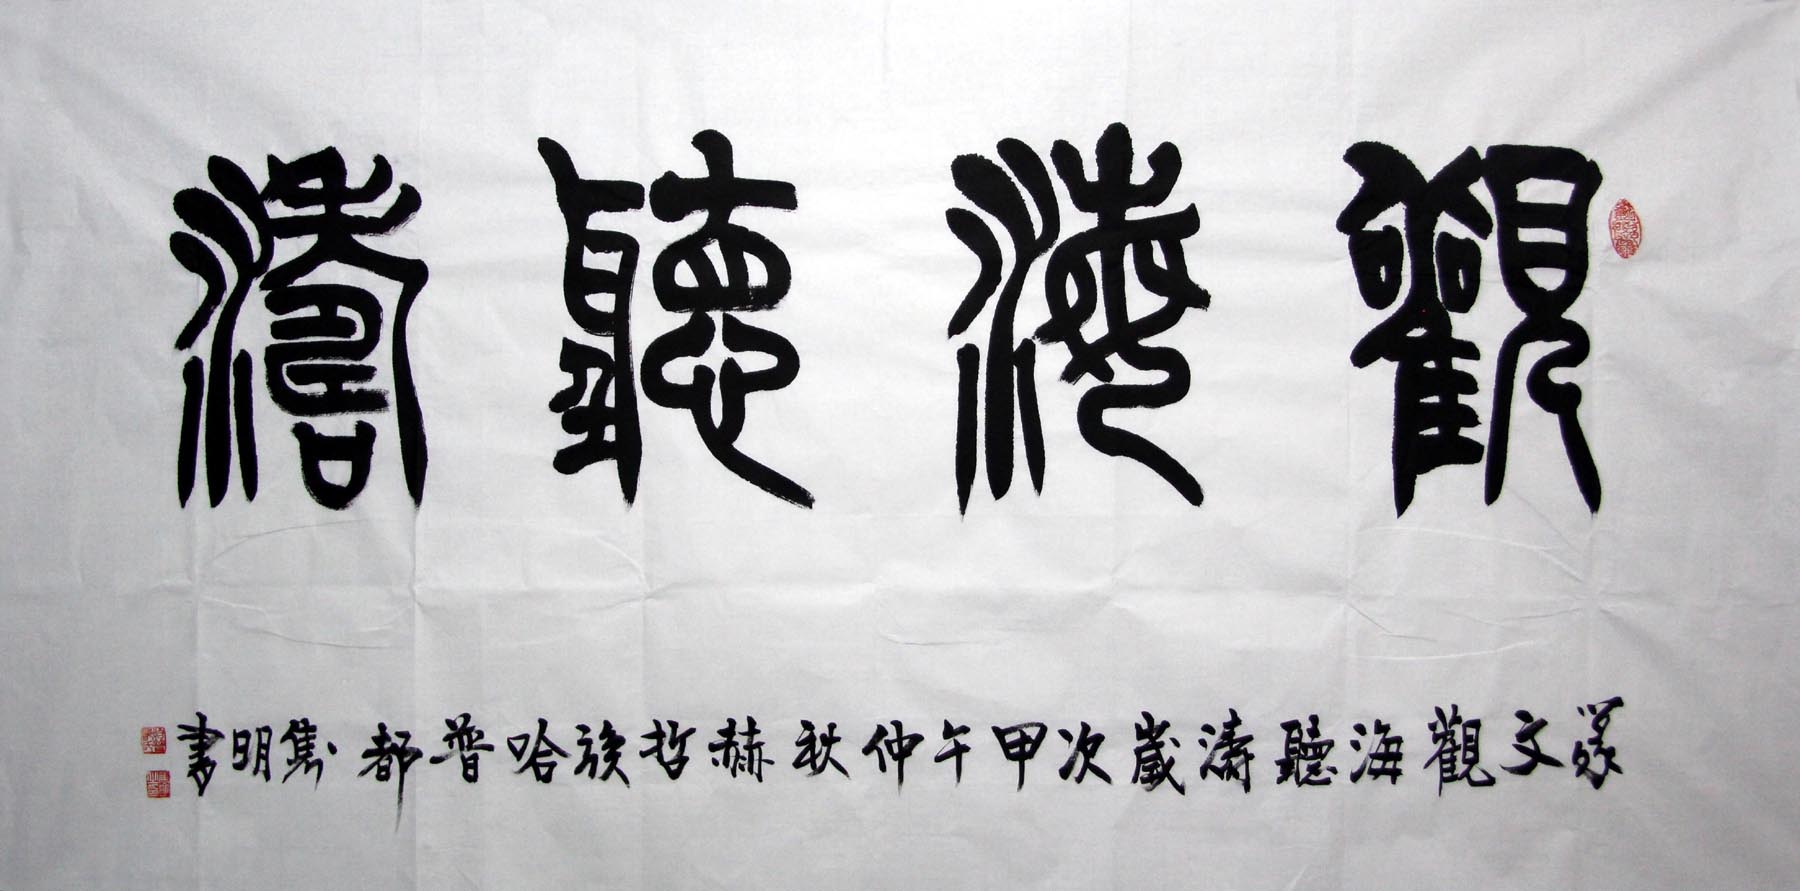 觀海聽濤
篆文觀海聽濤歲次甲午仲秋赫哲族哈普都雋明書